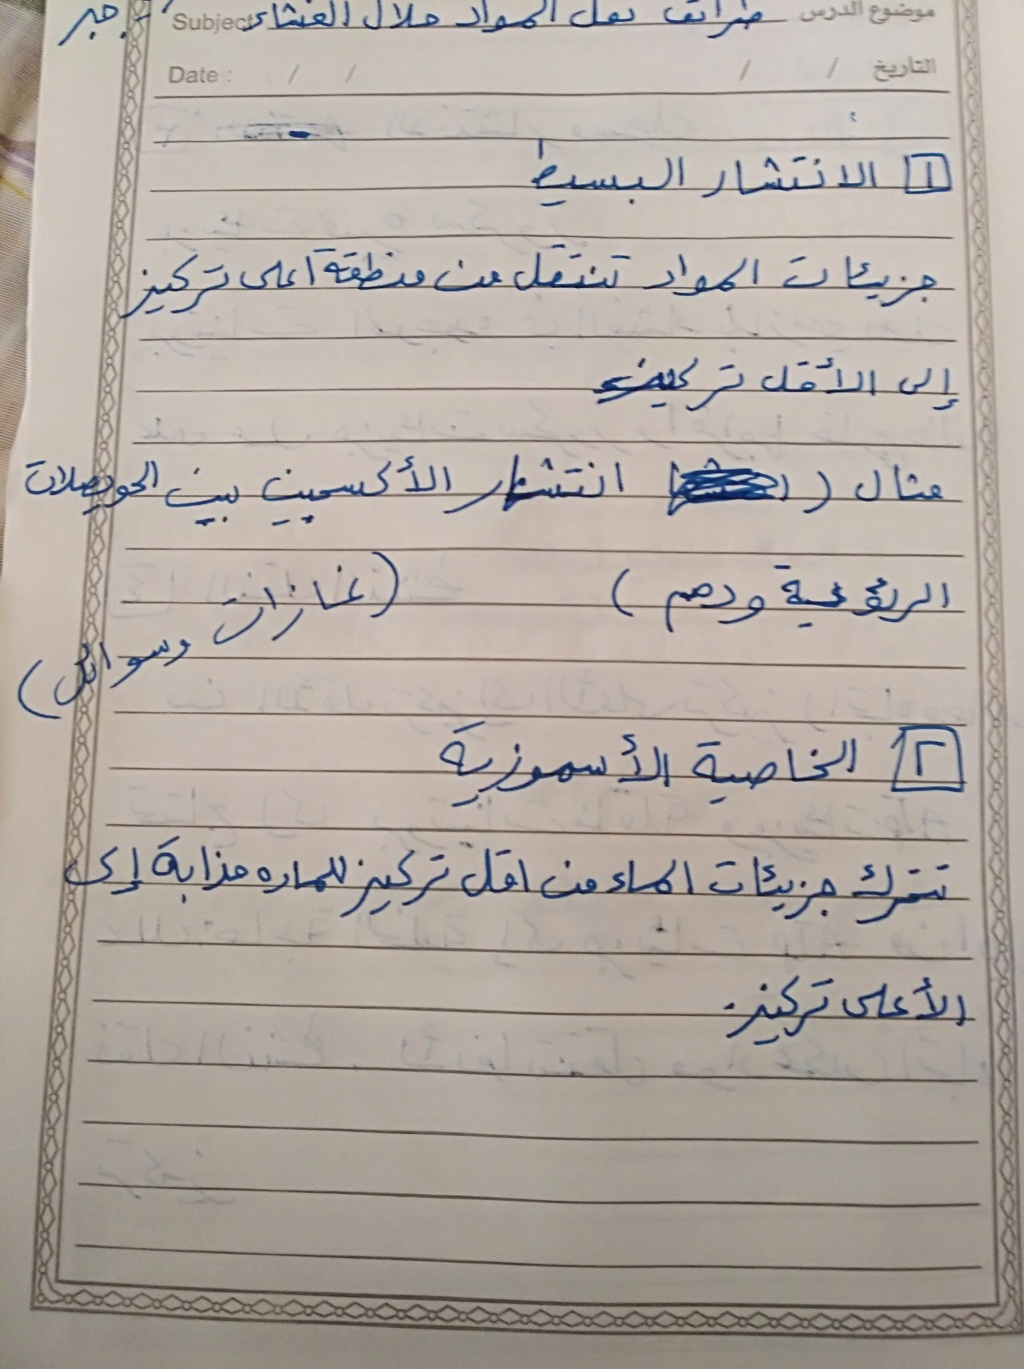 موضوع الدرس طرائق نقل المواد خلال الغشاء Subject
التاريخ / / / / Date :
١ الانتشار البسيط
جزيئات المواد تنتقل من منطقة اعلى تركيز
إلى الأقل تركيز
مثال ( انتشار الأكسجين بين الحويصلات
الرئوية ودم ) (غازات وسوائل)
٢ الخاصية الأسموزية
تتحرك جزيئات الماء من اقل تركيز للماده مذابة إلى
الأعلى تركيز.